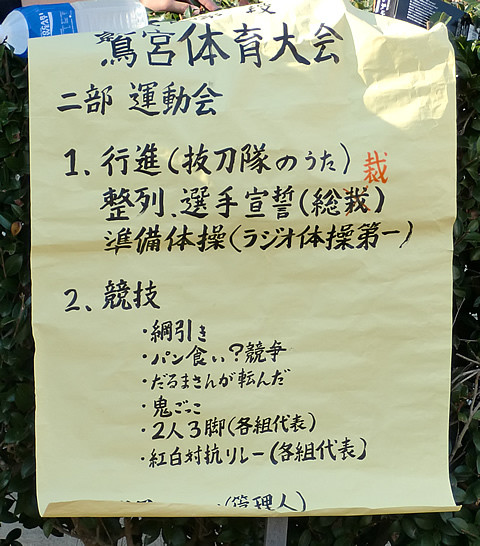 鷲宮体育大会
二部 運動会
1. 行進(抜刀隊のうた)
裁
整列、選手宣誓(総裁)
準備体操(ラジオ体操第一)
2. 競技
・綱引き
・パン食い?競争
・だるまさんが転んだ
・鬼ごっこ
・2人3脚(各組代表)
・紅白対抗リレー(各組代表)
(管理人)